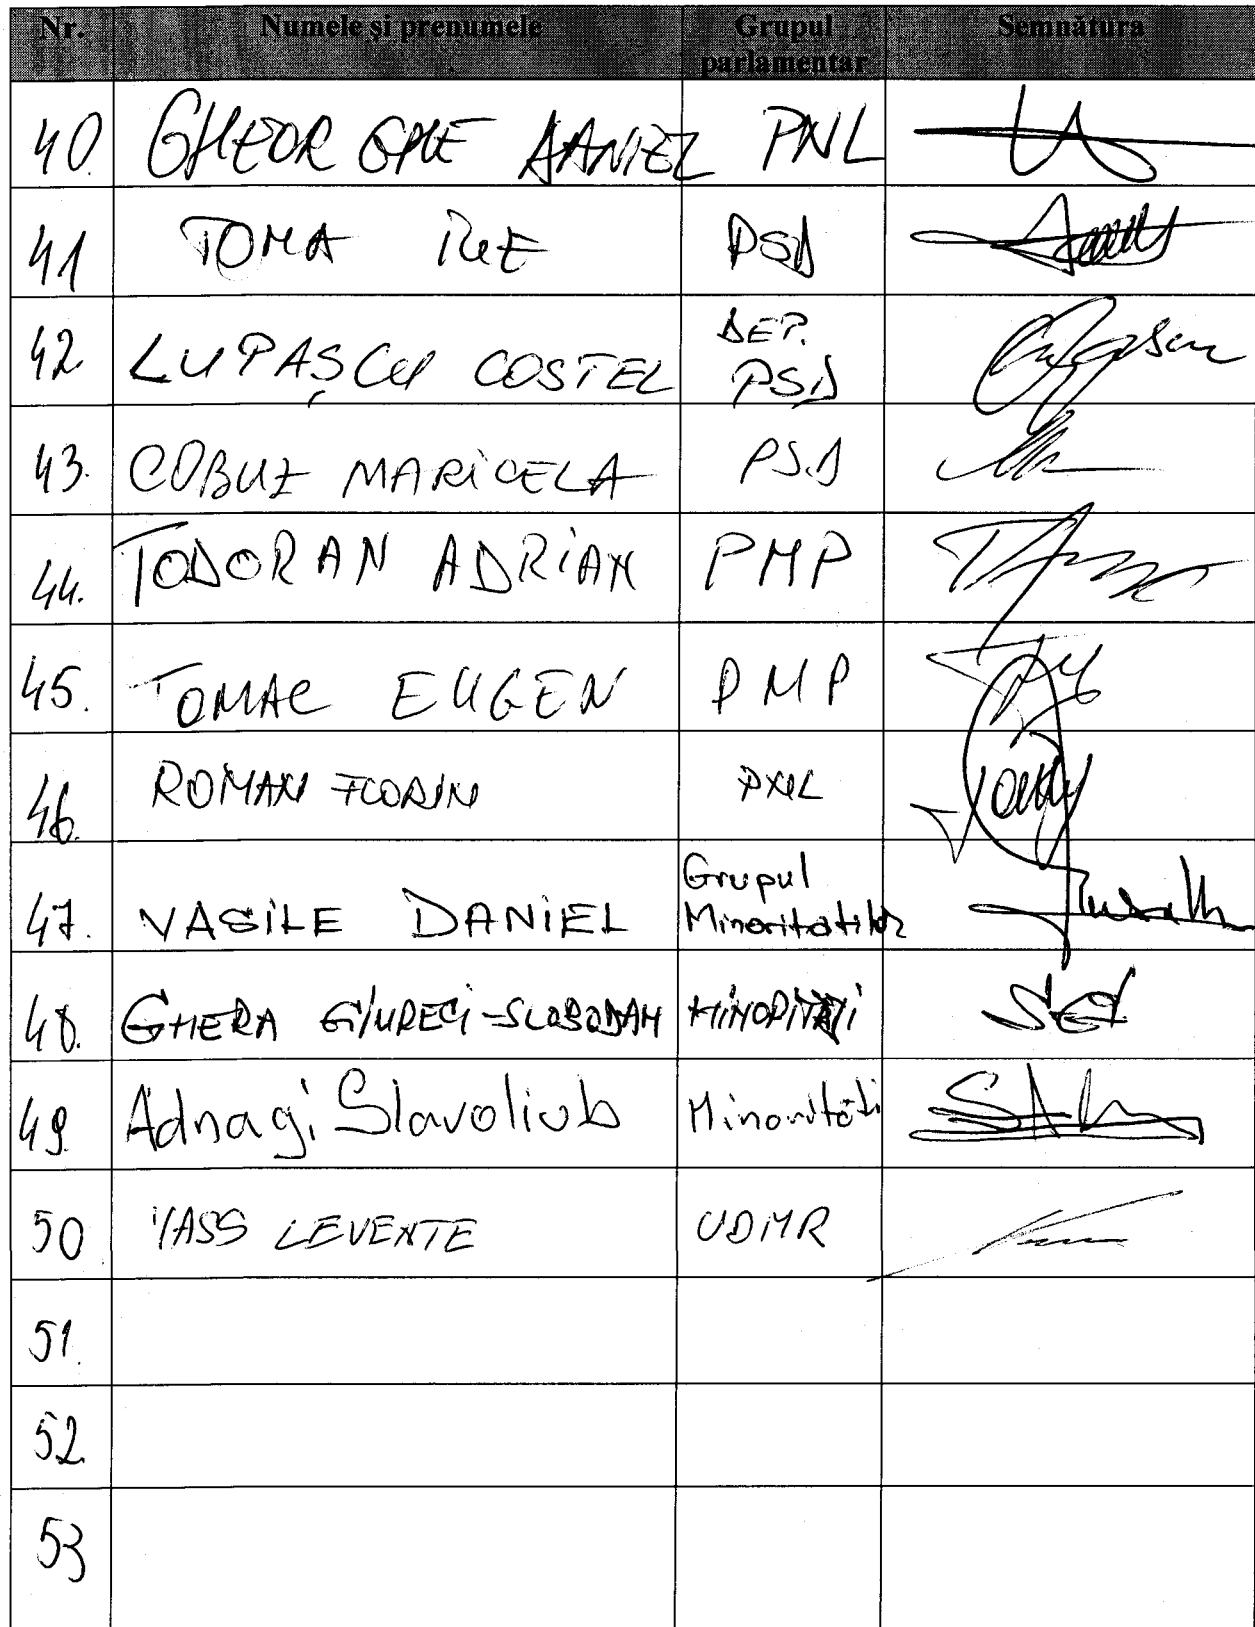 Nr. Numele și prenumele Grupul parlamentar Semnătura
40. GHEORGHE DANIEL PNL
41 TOMA ILIE PSD
42 LUPAȘCU COSTEL DEP. PSD
43. COBUZ MARICELA PSD
44. TODORAN ADRIAN PMP
45. TOMAC EUGEN PMP
46. ROMAN FLORIN PNL
47. VASILE DANIEL Grupul Minoritatilor
48. GHERA GIURECI-SLOBODAN MINORITĂȚI
49. Adnagi Slavoliub Minorități
50 VASS LEVENTE UDMR
51.
52.
53